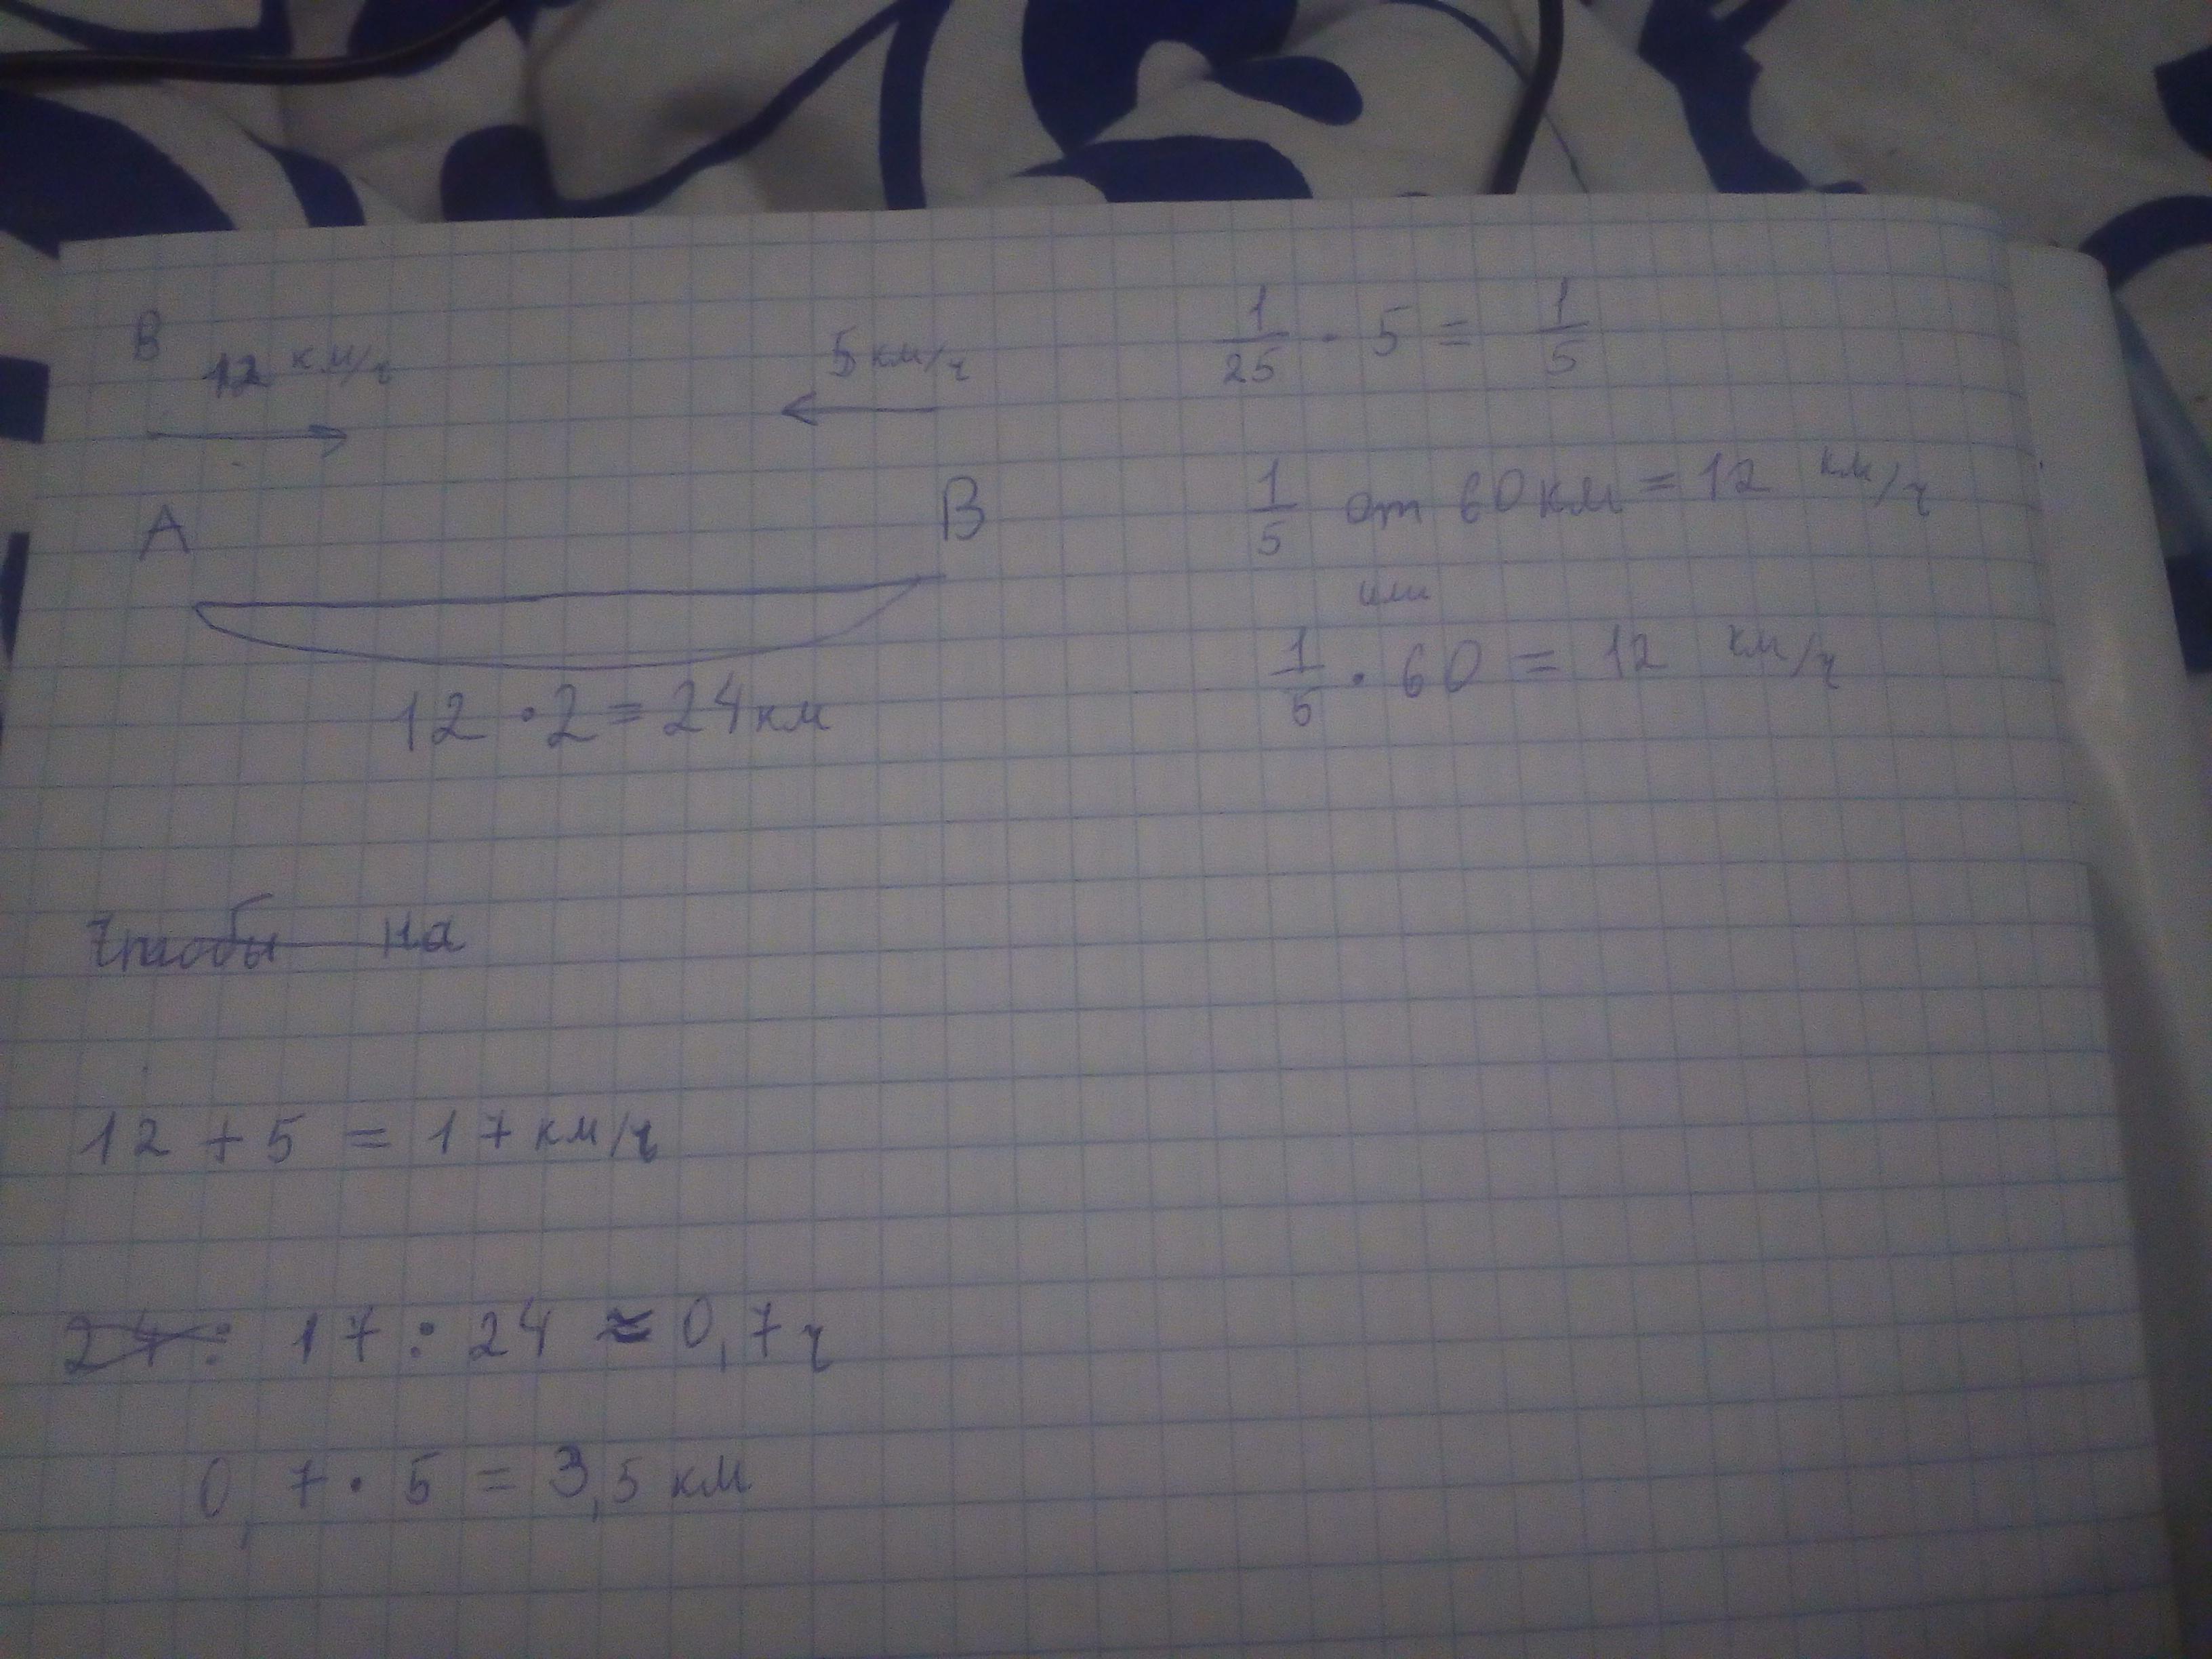 В
12 км/ч
5 км/ч
А
В
12 · 2 = 24 км
1/25 · 5 = 1/5
1/5 от 60 км = 12 км/ч
или
1/5 · 60 = 12 км/ч
Чтобы на
12 + 5 = 17 км/ч
24 : 17 : 24 ≈ 0,7 ч
0,7 · 5 = 3,5 км